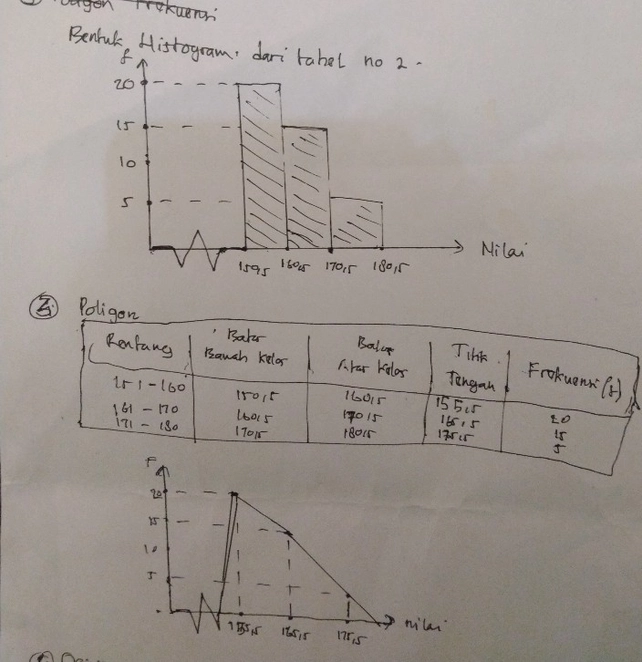 Frekuensi
Bentuk Histogram. dari tabel no 2.
f
20
15
10
5
150,5 160,5 170,5 180,5
Nilai
3. Poligon
Rentang Batas Bawah Kelas Batas Atas Kelas Titik Tengah Frekuensi (f)
151-160 150,5 160,5 155,5 20
161 - 170 160,5 170,5 165,5 15
171 - 180 170,5 180,5 175,5 5
F
20
15
10
5
155,5 165,5 175,5
nilai